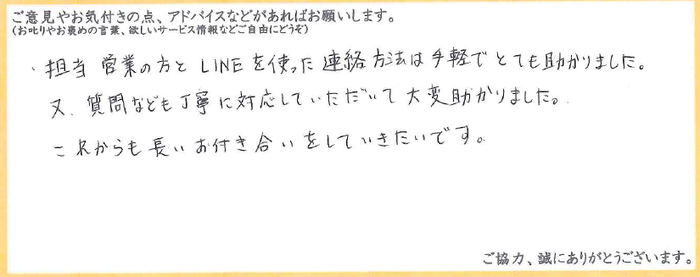 ご意見やお気付きの点、アドバイスなどがあればお願いします。
(お叱りやお褒めの言葉、欲しいサービス情報などご自由にどうぞ)
・担当 営業の方と LINEを使った連絡方法は手軽でとても助かりました。
又、質問なども丁寧に対応していただいて大変助かりました。
これからも長いお付き合いをしていきたいです。
ご協力、誠にありがとうございます。